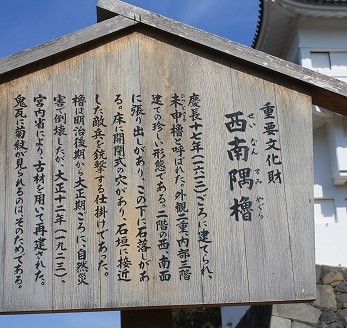 重要文化財
西南隅櫓
せいなんすみやぐら
慶長十七年(一六一二)ごろに建てられ、
未申櫓と呼ばれた。外観二重、内部三階
建ての珍しい形態である。二階の西・南面
に張り出しがあり、この下に石落しがあ
る。床に開閉式の穴があり、石垣に接近
した敵兵を銃撃する仕掛けであった。
櫓は明治後期から大正期ごろに、自然災
害で倒壊したが、大正十二年(一九二三)、
宮内省により、古材を用いて再建された。
鬼瓦に菊紋が見られるのは、そのためである。